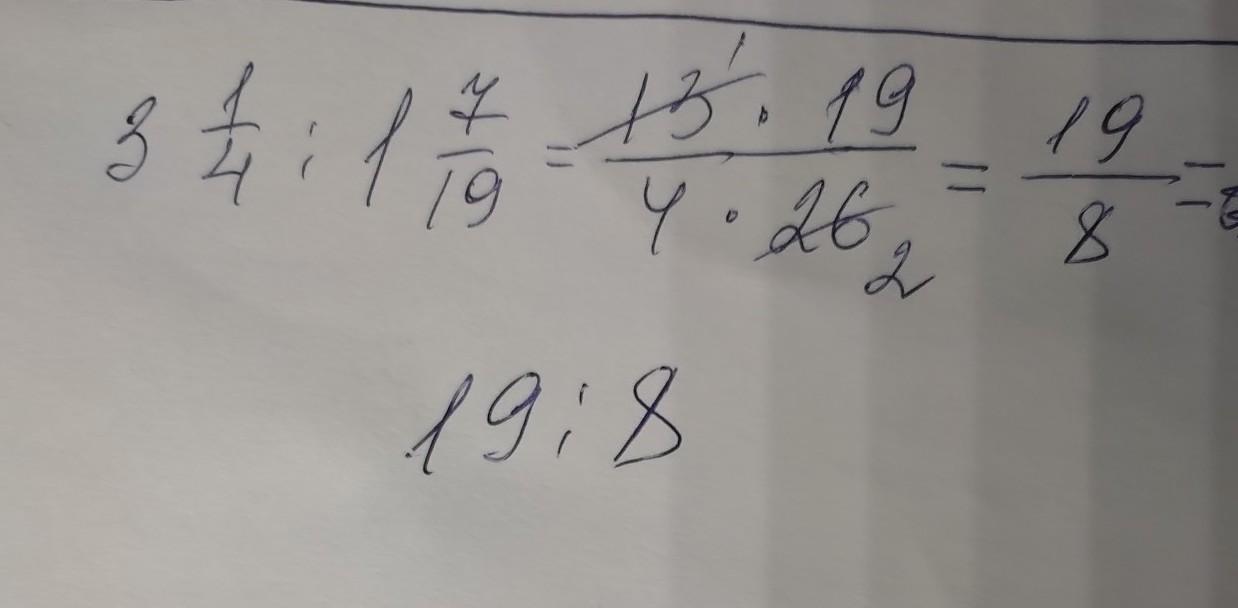 3 1/4 : 1 7/19 = 13 1 · 19 / 4 · 26 2 = 19/8 =
19 : 8